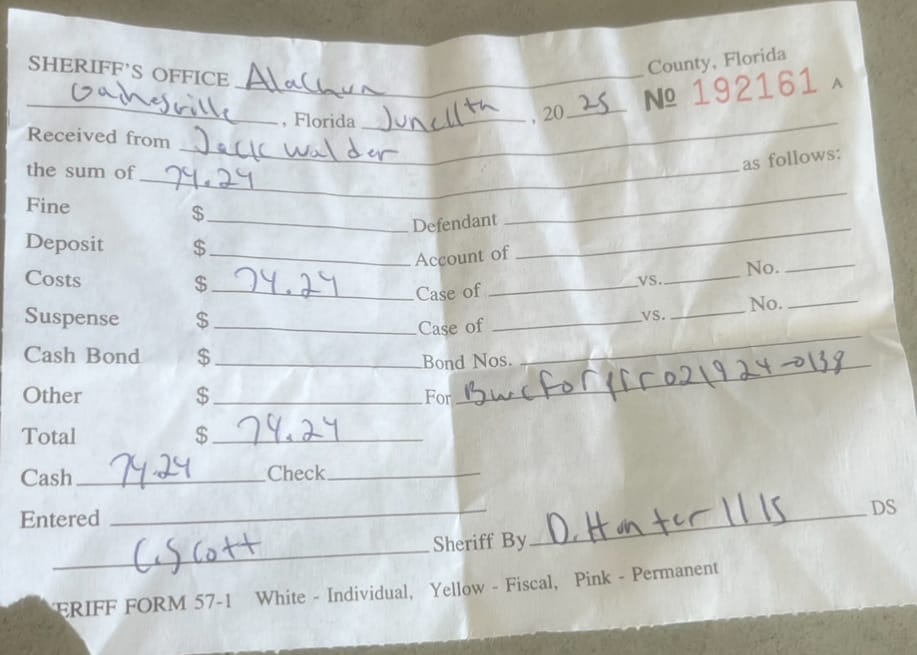 SHERIFF'S OFFICE Alachua County, Florida
Gainesville, Florida June 11th, 2025 No 192161 A
Received from Jack Walder
the sum of 74.24 as follows:
Fine $ Defendant
Deposit $ Account of
Costs $ 74.24 Case of vs. No.
Suspense $ Case of vs. No.
Cash Bond $ Bond Nos.
Other $ For Bwc for 021924-0138
Total $ 74.24
Cash 74.24 Check
Entered
C. Scott Sheriff By D. Hunter 1115 DS
ERIFF FORM 57-1 White - Individual, Yellow - Fiscal, Pink - Permanent